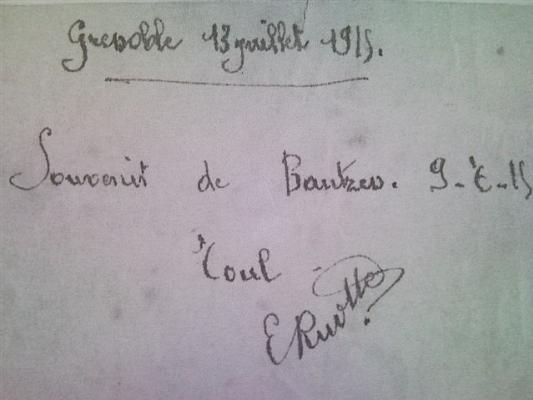 Grenoble 13 juillet 1915.
Souvenir de Bautzen. 9-6-15
Toul